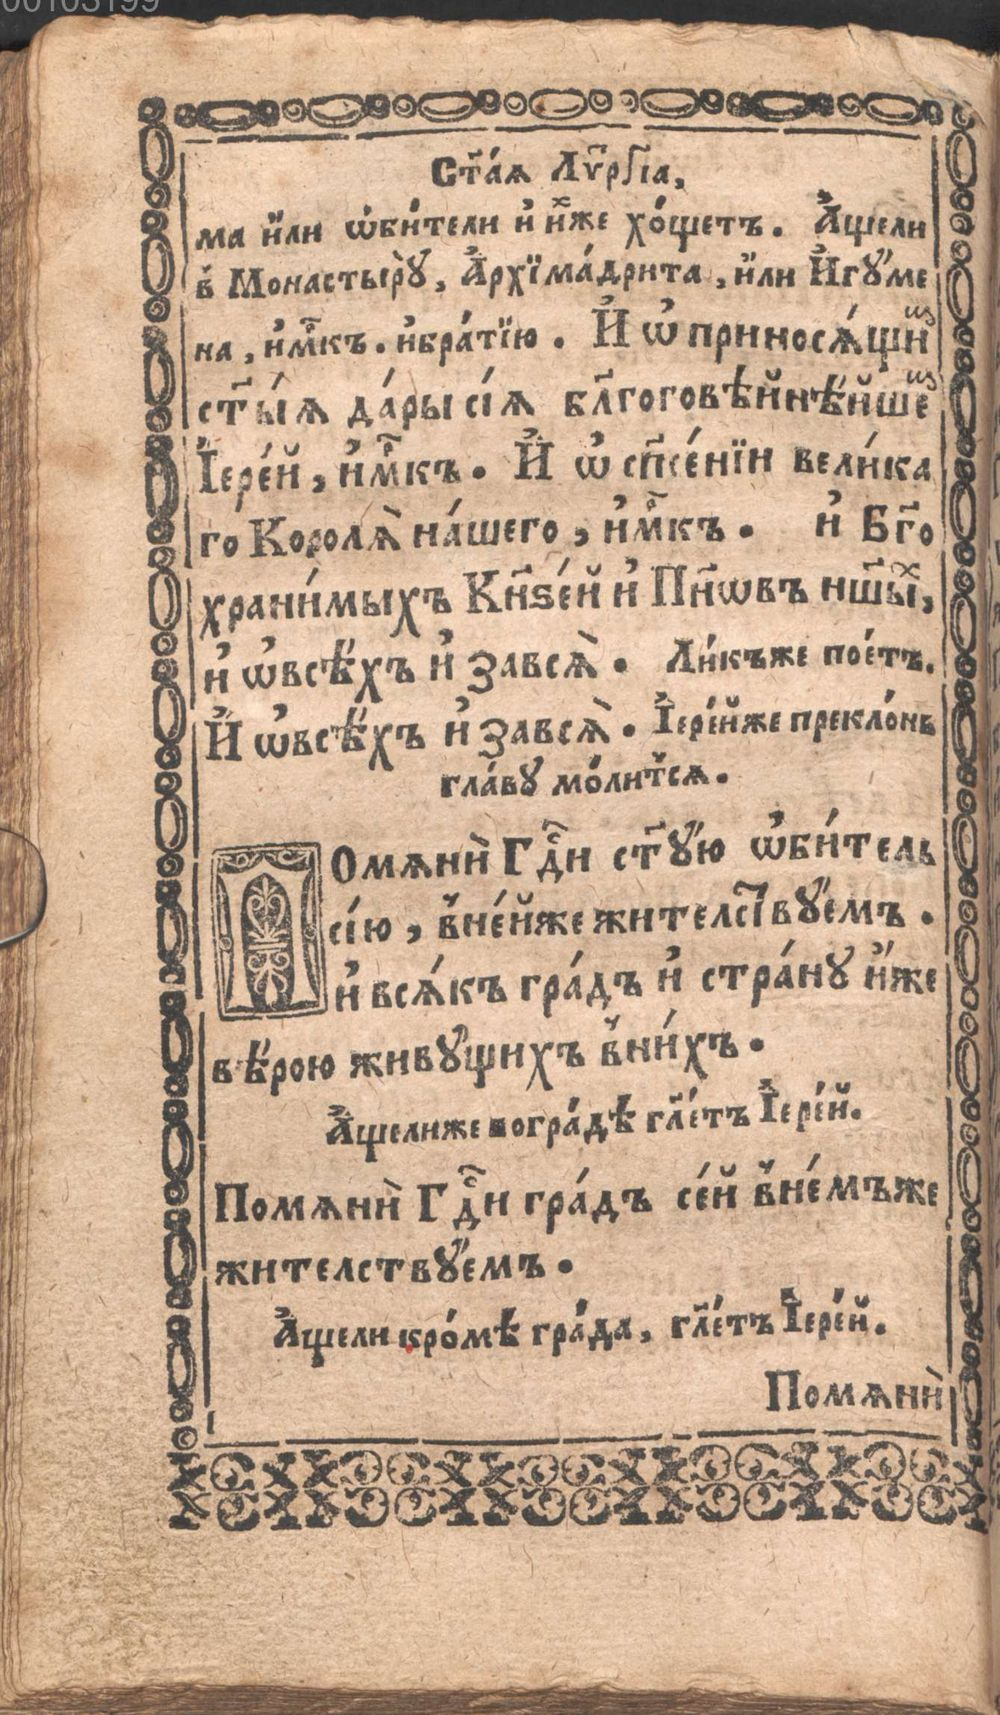 00103199
Ст҃а́ѧ Лѵ҃рⷢ҇іа,
ма и҆́ли ѡ҆би́тели и҆ и҆́хже хо́щетъ. А҆́щели
в̾ Монастырꙋ̀, А҆рхїма́дрита, и҆́ли И҆гꙋ́ме
на, и҆м҃къ. и҆бра́тїю. И҆ ѡ҆ принося́щиⷯ
ст҃ы́ѧ да́ры сїѧ̀ бл҃гоговѣ́йнѣ́йшеⷨ
І҆ере́й, и҆м҃къ. И҆ ѡ҆ сп҃се́нїи вели́ка
го Королѧ̀ на́шего, и҆м҃къ. и҆ Бг҃о
храни́мыхъ Кн҃ѕе́й и҆ Пн҃ѡвъ нш҃ыⷯ,
и҆ ѡ҆всѣ́хъ и҆ завсѧ̀. Ли́къже пое́тъ.
И҆ ѡ҆всѣ́хъ и҆ завсѧ̀. І҆ере́йже прекло́нь
гла́вꙋ мо́литсѧ.
ПОмѧнѝ Гдⷭ҇и ст҃ꙋ́ю ѡ҆би́тель
сі́ю, в̾не́йже жителст҃вꙋ́емъ.
и҆ всѧ́къ гра́дъ и҆ стра́нꙋ и҆́же
вѣ́рою живꙋ́щихъ в̾ни́хъ.
А҆́щелиже вогра́дѣ гл҃етъ І҆ере́й.
Помѧнѝ Гдⷭ҇и гра́дъ се́й в̾не́мъже
жителствꙋ́емъ.
А҆́щели кро́мѣ гра́да, гл҃етъ І҆ере́й.
Помѧнѝ